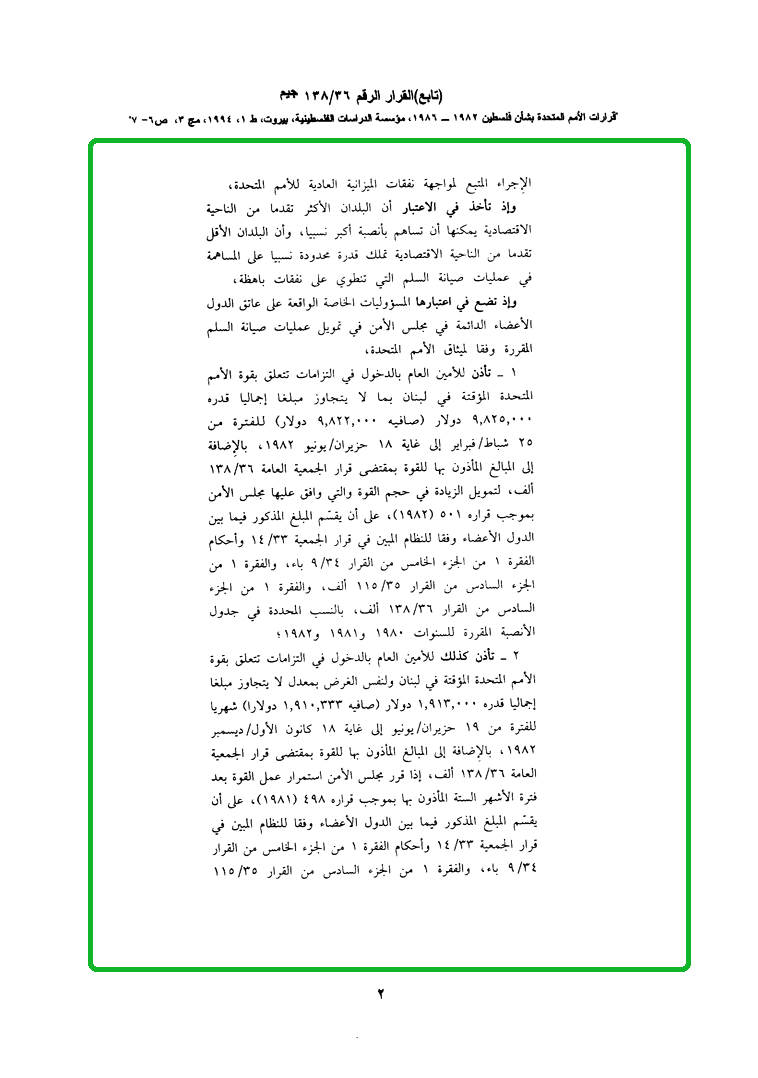 (تابع)القرار الرقم ١٣٨/٣٦ جيم
"قرارات الأمم المتحدة بشأن فلسطين ١٩٨٢ ــ ١٩٨٦، مؤسسة الدراسات الفلسطينية، بيروت، ط ١، ١٩٩٤، مج ٣، ص٦- ٧"
الإجراء المتبع لمواجهة نفقات الميزانية العادية للأمم المتحدة،
وإذ تأخذ في الاعتبار أن البلدان الأكثر تقدما من الناحية
الاقتصادية يمكنها أن تساهم بأنصبة أكبر نسبيا، وأن البلدان الأقل
تقدما من الناحية الاقتصادية تملك قدرة محدودة نسبيا على المساهمة
في عمليات صيانة السلم التي تنطوي على نفقات باهظة،
وإذ تضع في اعتبارها المسؤوليات الخاصة الواقعة على عاتق الدول
الأعضاء الدائمة في مجلس الأمن في تمويل عمليات صيانة السلم
المقررة وفقا لميثاق الأمم المتحدة،
١ ـ تأذن للأمين العام بالدخول في التزامات تتعلق بقوة الأمم
المتحدة المؤقتة في لبنان بما لا يتجاوز مبلغا إجماليا قدره
٩,٨٢٥,٠٠٠ دولار (صافيه ٩,٨٢٢,٠٠٠ دولار) للفترة من
٢٥ شباط/فبراير إلى غاية ١٨ حزيران/يونيو ١٩٨٢، بالإضافة
إلى المبالغ المأذون بها للقوة بمقتضى قرار الجمعية العامة ١٣٨/٣٦
ألف، لتمويل الزيادة في حجم القوة والتي وافق عليها مجلس الأمن
بموجب قراره ٥٠١ (١٩٨٢)، على أن يقسّم المبلغ المذكور فيما بين
الدول الأعضاء وفقا للنظام المبين في قرار الجمعية ١٤/٣٣ وأحكام
الفقرة ١ من الجزء الخامس من القرار ٩/٣٤ باء، والفقرة ١ من
الجزء السادس من القرار ١١٥/٣٥ ألف، والفقرة ١ من الجزء
السادس من القرار ١٣٨/٣٦ ألف، بالنسب المحددة في جدول
الأنصبة المقررة للسنوات ١٩٨٠ و١٩٨١ و١٩٨٢؛
٢ ـ تأذن كذلك للأمين العام بالدخول في التزامات تتعلق بقوة
الأمم المتحدة المؤقتة في لبنان ولنفس الغرض بمعدل لا يتجاوز مبلغا
إجماليا قدره ١,٩١٣,٠٠٠ دولار (صافيه ١,٩١٠,٣٣٣ دولارا) شهريا
للفترة من ١٩ حزيران/يونيو إلى غاية ١٨ كانون الأول/ديسمبر
١٩٨٢، بالإضافة إلى المبالغ المأذون بها للقوة بمقتضى قرار الجمعية
العامة ١٣٨/٣٦ ألف، إذا قرر مجلس الأمن استمرار عمل القوة بعد
فترة الأشهر الستة المأذون بها بموجب قراره ٤٩٨ (١٩٨١)، على أن
يقسّم المبلغ المذكور فيما بين الدول الأعضاء وفقا للنظام المبين في
قرار الجمعية ١٤/٣٣ وأحكام الفقرة ١ من الجزء الخامس من القرار
٩/٣٤ باء، والفقرة ١ من الجزء السادس من القرار ١١٥/٣٥
٢